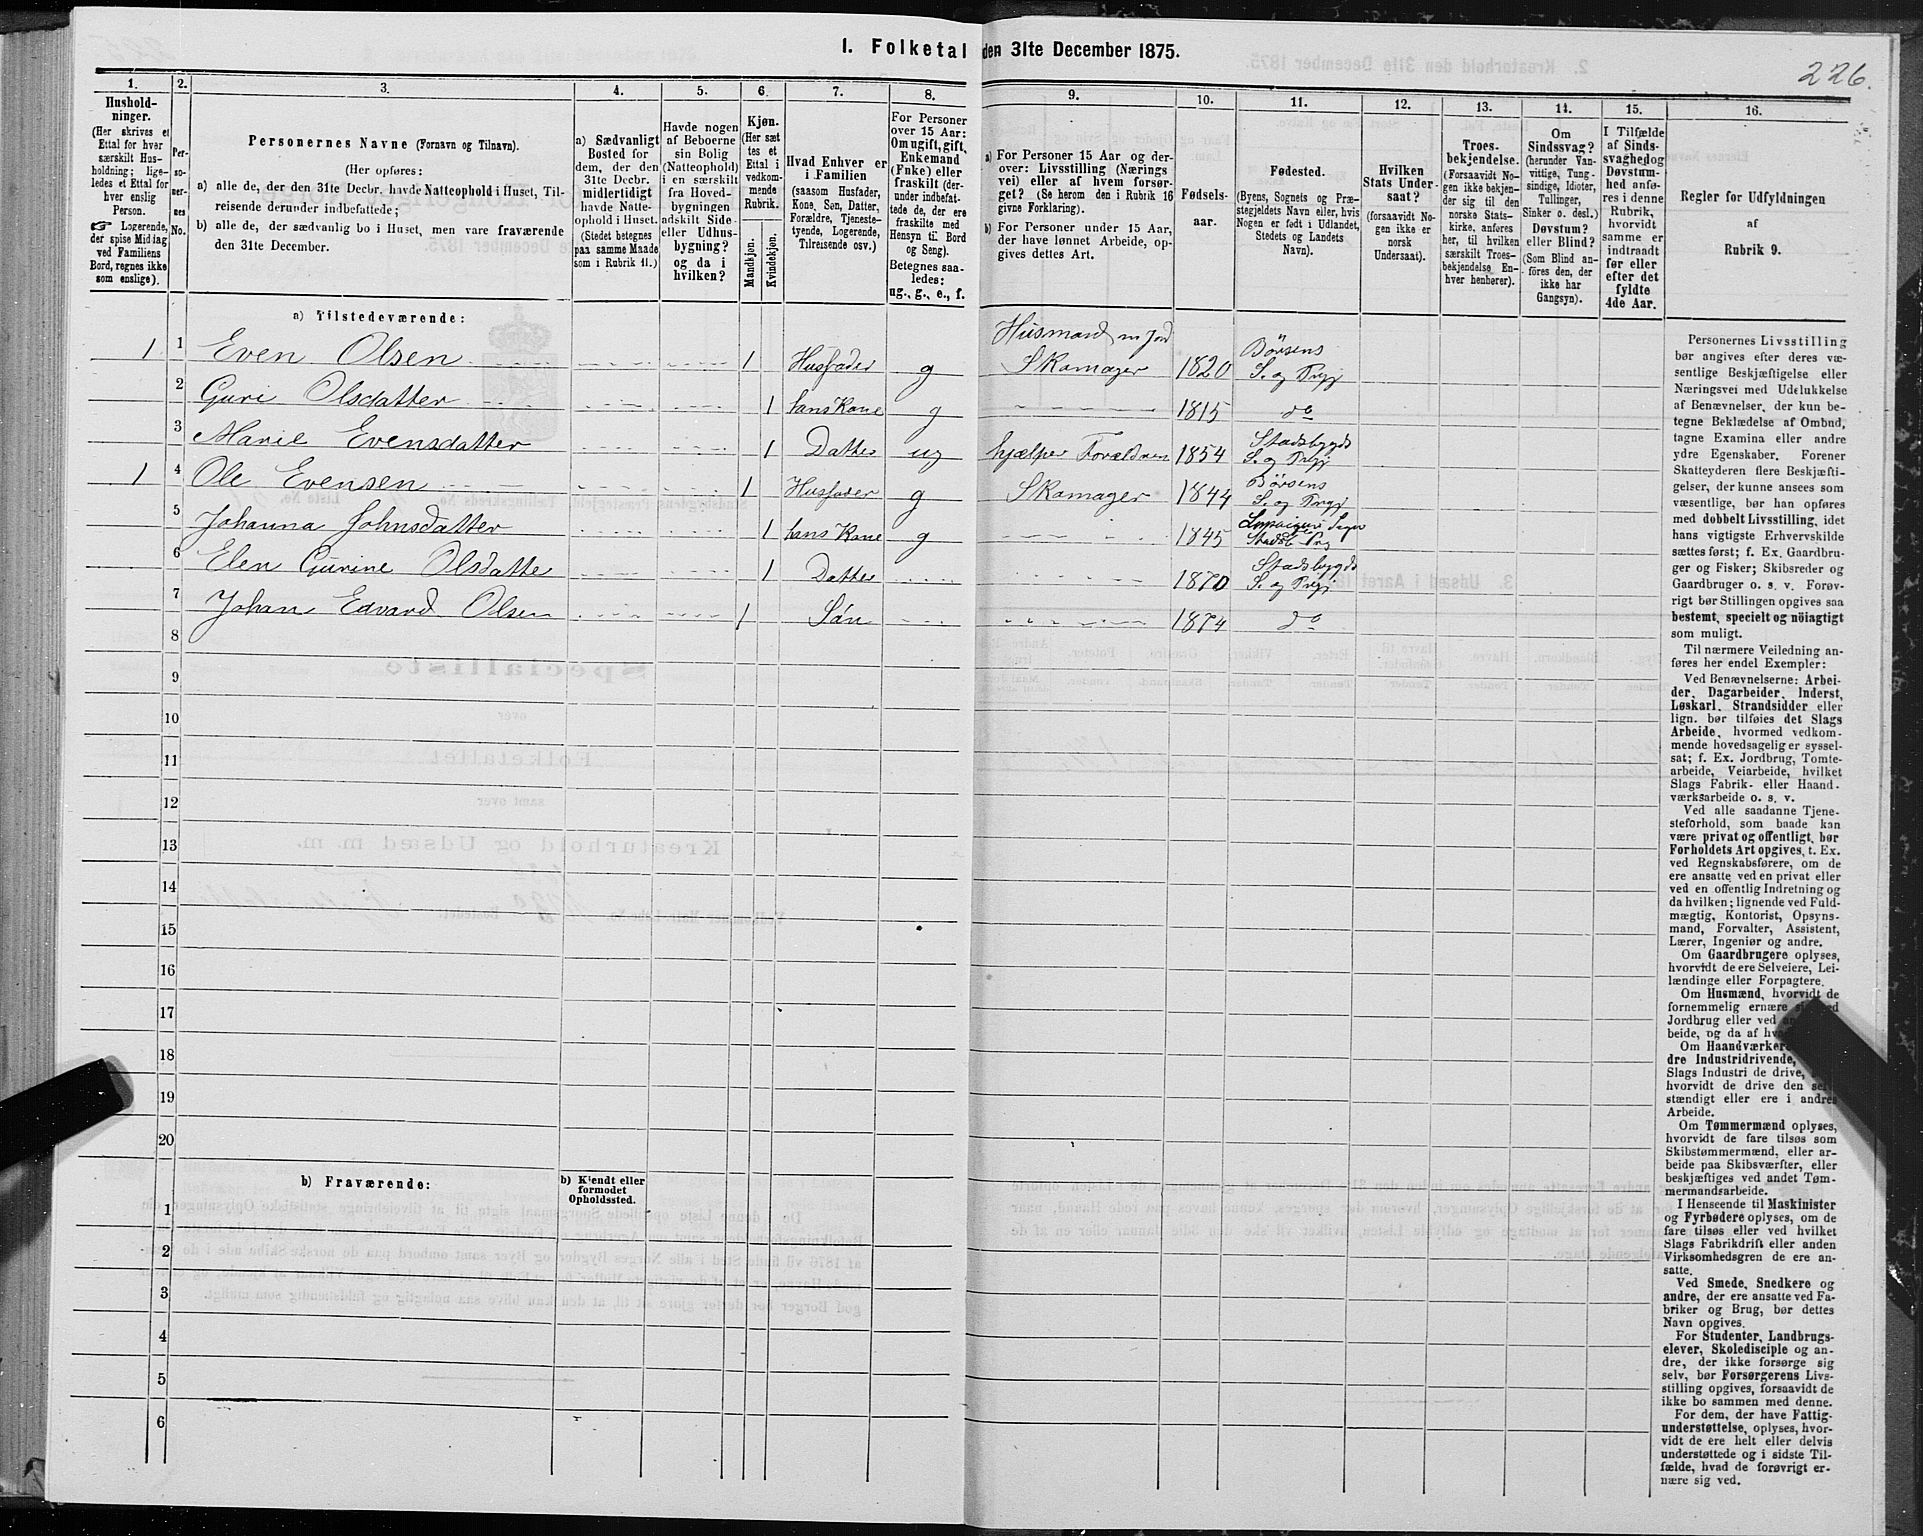 I. Folketal den 31te December 1875.
226.
1. 2. 3. 4. 5. 6. 7. 8. 9. 10. 11. 12. 13. 14. 15. 16.
Hushold-
ninger.
(Her skrives et
Ettal for hver
særskilt Hus-
holdning; lige-
ledes et Ettal for
hver enslig
Person.
☞ Logerende,
der spise Middag
ved Familiens
Bord, regnes ikke
som enslige).
Per-
so-
ner-
nes
No.
Personernes Navne (Fornavn og Tilnavn).
(Her opføres:
a) alle de, der den 31te Decbr. havde Natteophold i Huset, Til-
reisende derunder indbefattede;
b) alle de, der sædvanlig bo i Huset, men vare fraværende
den 31te December.
a) Sædvanligt
Bosted for
dem, der den
31te Decbr.
midlertidigt
havde Natte-
ophold i Huset.
(Stedet betegnes
paa samme Maade
som i Rubrik 11.)
Havde nogen
af Beboerne
sin Bolig
(Natteophold)
i en særskilt
fra Hoved-
bygningen
adskilt Side-
eller Udhus-
bygning?
og da i
hvilken?
Kjøn.
(Her sæt-
tes et
Ettal i
vedkom-
mende
Rubrik.
Mandkjøn.
Kvindekjøn.
Hvad Enhver er
i Familien
(saasom Husfader,
Kone, Søn, Datter,
Forældre, Tjeneste-
tyende, Logerende,
Tilreisende osv.)
For Personer
over 15 Aar:
Om ugift, gift,
Enkemand
(Enke) eller
fraskilt (der-
under indbefat-
tede de, der ere
fraskilte med
Hensyn til Bord
og Seng).
Betegnes saa-
ledes:
ug., g., e., f.
a) For Personer 15 Aar og der-
over: Livsstilling (Nærings-
vei) eller af hvem forsør-
get? (Se herom den i Rubrik 16
givne Forklaring).
b) For Personer under 15 Aar,
der have lønnet Arbeide, op-
gives dettes Art.
Fødsels-
aar.
Fødested.
(Byens, Sognets og Præ-
stegjeldets Navn eller, hvis
Nogen er født i Udlandet,
Stedets og Landets
Navn).
Hvilken
Stats Under-
saat?
(forsaavidt No-
gen ikke er
norsk
Undersaat).
Troes-
bekjendelse.
(Forsaavidt No-
gen ikke bekjen-
der sig til den
norske Stats-
kirke, anføres
her, til hvilken
særskilt Troes-
bekjendelse En-
hver henhører).
Om
Sindssvag?
(herunder Van-
vittige, Tung-
sindige, Idioter,
Tullinger,
Sinker o. desl.)
Døvstum?
eller Blind?
(Som Blind an-
føres den, der
ikke har
Gangsyn).
I Tilfælde
af Sinds-
svaghed og
Døvstum-
hed anfø-
res i denne
Rubrik,
hvorvidt
samme er
indtraadt
før eller
efter det
fyldte
4de Aar.
Regler for Udfyldningen
af
Rubrik 9.
a) Tilstedeværende:
1 1 Even Olsen 1 Husfader g Husmand m Jord Skomager 1820 Børsens S. og Prgj
2 Guri Olsdatter 1 hans Kone g 1815 do
3 Marie Evensdatter 1 Datter ug hjælper Forældren 1854 Stadsbygds S. og Prgj
1 4 Ole Evensen 1 Husfader g Skomager 1844 Børsens S. og Prgj
5 Johanna Johnsdatter 1 hans Kone g 1845 Stadsb Prg
6 Elen Gurine Olsdatter 1 Datter 1870 Stadsbygds S. og Prgj
7 Johan Edvard Olsen 1 Søn 1874 do
8
9
10
11
12
13
14
15
16
17
18
19
20
b) Fraværende:
b) Kjendt eller
formodet
Opholdssted.
1
2
3
4
5
6
Personernes Livsstilling
bør angives efter deres væ-
sentlige Beskjæftigelse eller
Næringsvei med Udelukkelse
af Benævnelser, der kun be-
tegne Beklædelse af Ombud,
tagne Examina eller andre
ydre Egenskaber. Forener
Skatteyderen flere Beskjæfti-
gelser, der kunne ansees som
væsentlige, bør han opføres
med dobbelt Livsstilling, idet
hans vigtigste Erhvervskilde
sættes først; f. Ex. Gaardbru-
ger og Fisker; Skibsreder og
Gaardbruger o. s. v. Forøv-
rigt bør Stillingen opgives saa
bestemt, specielt og nöiagtigt
som muligt.
Til nærmere Veiledning an-
føres her endel Exempler:
Ved Benævnelserne: Arbei-
der, Dagarbeider, Inderst,
Løskarl, Strandsidder eller
lign. bør tilføies det Slags
Arbeide, hvormed vedkom-
mende hovedsagelig er syssel-
sat; f. Ex. Jordbrug, Tomte-
arbeide, Veiarbeide, hvilket
Slags Fabrik- eller Haand-
værksarbeide o. s. v.
Ved alle saadanne Tjene-
steforhold, som baade kan
være privat og offentligt, bør
Forholdets Art opgives, t. Ex.
ved Regnskabsførere, om de
ere ansatte ved en privat eller
ved en offentlig Indretning og
da hvilken; lignende ved Fuld-
mægtig, Kontorist, Opsyns-
mand, Forvalter, Assistent,
Lærer, Ingeniør og andre.
Om Gaardbrugere oplyses,
hvorvidt de ere Selveiere, Lei-
lændinge eller Forpagtere.
Om Husmænd, hvorvidt de
fornemmelig ernære
Jordbrug eller ved
beide, og da af
Om Haandværkere
dre Industridrivende,
Slags Industri de drive,
hvorvidt de drive den sel-
stændigt eller ere i andres
Arbeide.
Om Tømmermænd oplyses,
hvorvidt de fare tilsøs som
Skibstømmermænd, eller ar-
beide paa Skibsværfter, eller
beskjæftiges ved andet Tøm-
mermandsarbeide.
I Henseende til Maskinister
og Fyrbødere oplyses, om de
fare tilsøs eller ved hvilket
Slags Fabrikdrift eller anden
Virksomhedsgren de ere an-
satte.
Ved Smede, Snedkere og
andre, der ere ansatte ved Fa-
briker og Brug, bør dettes
Navn opgives.
For Studenter, Landbrugs-
elever, Skoledisciple og an-
dre, der ikke forsørge sig
selv, bør Forsørgerens Livs-
stilling opgives, forsaavidt de
ikke bo sammen med denne.
For dem, der have Fattig-
understøttelse, oplyses, hvor-
vidt de ere helt eller delvis
understøttede og i sidste Til-
fælde, hvad de forøvrigt er-
nære sig ved.